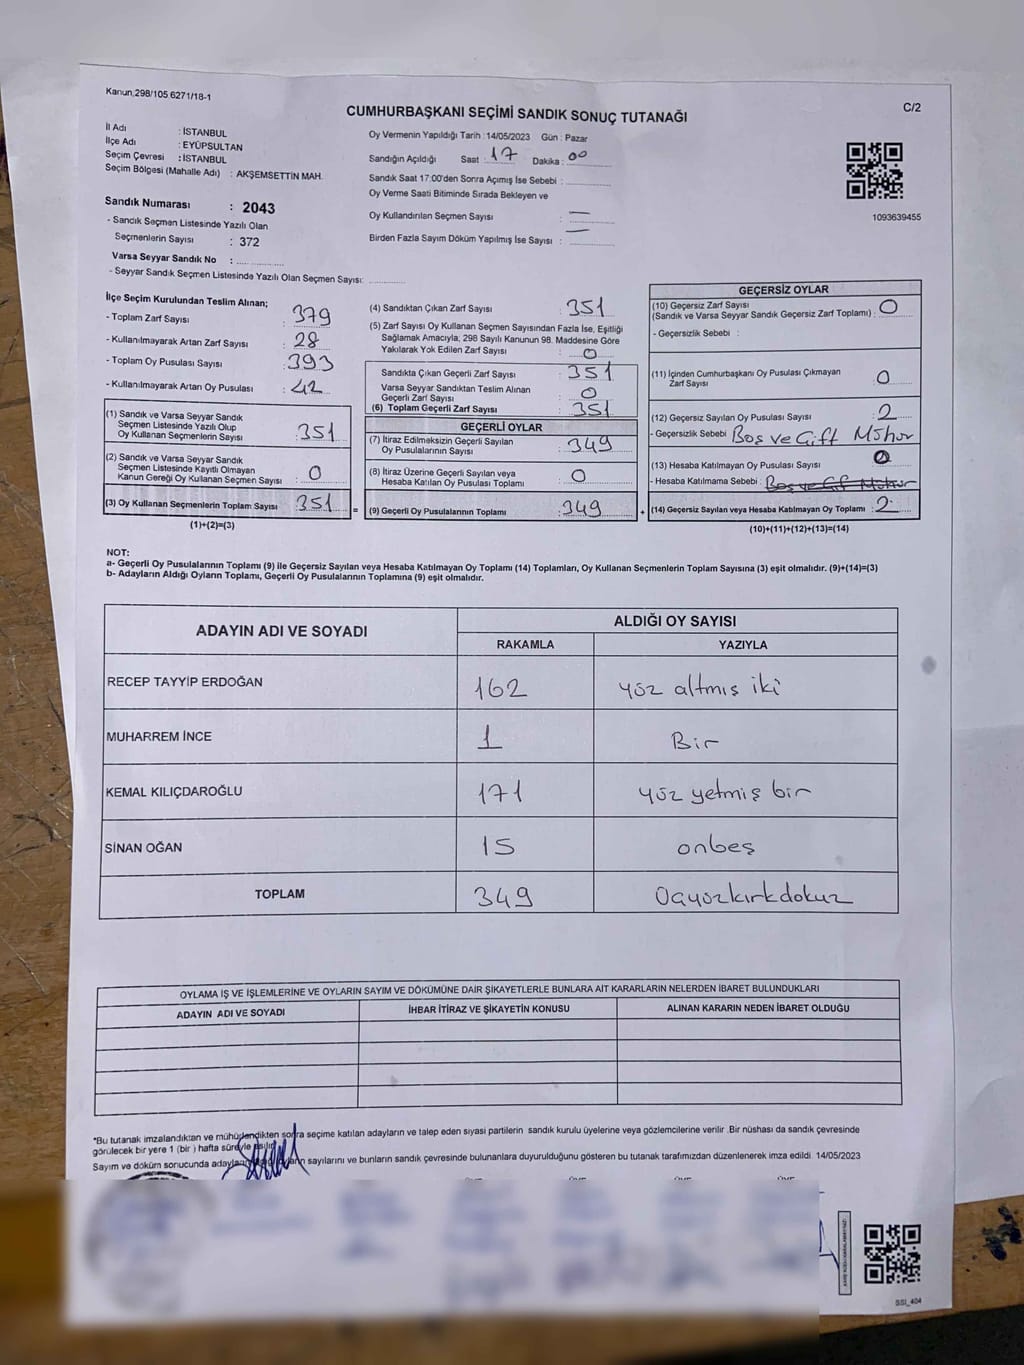 Kanun,298/105 6271/18-1
C/2
CUMHURBAŞKANI SEÇİMİ SANDIK SONUÇ TUTANAĞI
İl Adı : İSTANBUL
İlçe Adı : EYÜPSULTAN
Seçim Çevresi : İSTANBUL
Seçim Bölgesi (Mahalle Adı) : AKŞEMSETTİN MAH.
Sandık Numarası : 2043
- Sandık Seçmen Listesinde Yazılı Olan
Seçmenlerin Sayısı : 372
Varsa Seyyar Sandık No :
- Seyyar Sandık Seçmen Listesinde Yazılı Olan Seçmen Sayısı:
Oy Vermenin Yapıldığı Tarih : 14/05/2023 Gün : Pazar
Sandığın Açıldığı Saat : 17 Dakika : 00
Sandık Saat 17:00'den Sonra Açımış İse Sebebi :
Oy Verme Saati Bitiminde Sırada Bekleyen ve
Oy Kullandırılan Seçmen Sayısı : —
Birden Fazla Sayım Döküm Yapılmış İse Sayısı : —
1093639455
İlçe Seçim Kurulundan Teslim Alınan;
- Toplam Zarf Sayısı : 379
- Kullanılmayarak Artan Zarf Sayısı : 28
- Toplam Oy Pusulası Sayısı : 393
- Kullanılmayarak Artan Oy Pusulası : 42
(1) Sandık ve Varsa Seyyar Sandık
Seçmen Listesinde Yazılı Olup
Oy Kullanan Seçmenlerin Sayısı : 351
(2) Sandık ve Varsa Seyyar Sandık
Seçmen Listesinde Kayıtlı Olmayan
Kanun Gereği Oy Kullanan Seçmen Sayısı : 0
(3) Oy Kullanan Seçmenlerin Toplam Sayısı : 351 =
(1)+(2)=(3)
(4) Sandıktan Çıkan Zarf Sayısı : 351
(5) Zarf Sayısı Oy Kullanan Seçmen Sayısından Fazla İse, Eşitliği
Sağlamak Amacıyla; 298 Sayılı Kanunun 98. Maddesine Göre
Yakılarak Yok Edilen Zarf Sayısı : 0
Sandıkta Çıkan Geçerli Zarf Sayısı : 351
Varsa Seyyar Sandıktan Teslim Alınan
Geçerli Zarf Sayısı : 0
(6) Toplam Geçerli Zarf Sayısı : 351
GEÇERLİ OYLAR
(7) İtiraz Edilmeksizin Geçerli Sayılan
Oy Pusulalarının Sayısı : 349
(8) İtiraz Üzerine Geçerli Sayılan veya
Hesaba Katılan Oy Pusulası Toplamı : 0
(9) Geçerli Oy Pusulalarının Toplamı : 349 +
GEÇERSİZ OYLAR
(10) Geçersiz Zarf Sayısı
(Sandık ve Varsa Seyyar Sandık Geçersiz Zarf Toplamı) : 0
- Geçersizlik Sebebi :
(11) İçinden Cumhurbaşkanı Oy Pusulası Çıkmayan
Zarf Sayısı : 0
(12) Geçersiz Sayılan Oy Pusulası Sayısı : 2
- Geçersizlik Sebebi : Boş ve Çift Mühür
(13) Hesaba Katılmayan Oy Pusulası Sayısı : 0
- Hesaba Katılmama Sebebi : Boş ve Çif Mühür
(14) Geçersiz Sayılan veya Hesaba Katılmayan Oy Toplamı : 2
(10)+(11)+(12)+(13)=(14)
NOT:
a- Geçerli Oy Pusulalarının Toplamı (9) ile Geçersiz Sayılan veya Hesaba Katılmayan Oy Toplamı (14) Toplamları, Oy Kullanan Seçmenlerin Toplam Sayısına (3) eşit olmalıdır. (9)+(14)=(3)
b- Adayların Aldığı Oyların Toplamı, Geçerli Oy Pusulalarının Toplamına (9) eşit olmalıdır.
ADAYIN ADI VE SOYADI
ALDIĞI OY SAYISI
RAKAMLA YAZIYLA
RECEP TAYYİP ERDOĞAN 162 yüz altmış iki
MUHARREM İNCE 1 Bir
KEMAL KILIÇDAROĞLU 171 yüz yetmiş bir
SİNAN OĞAN 15 onbeş
TOPLAM 349 üçyüzkırkdokuz
OYLAMA İŞ VE İŞLEMLERİNE VE OYLARIN SAYIM VE DÖKÜMÜNE DAİR ŞİKAYETLERLE BUNLARA AİT KARARLARIN NELERDEN İBARET BULUNDUKLARI
ADAYIN ADI VE SOYADI İHBAR İTİRAZ VE ŞİKAYETİN KONUSU ALINAN KARARIN NEDEN İBARET OLDUĞU
*Bu tutanak imzalandıktan ve mühürlendikten sonra seçime katılan adayların ve talep eden siyasi partilerin sandık kurulu üyelerine veya gözlemcilerine verilir .Bir nüshası da sandık çevresinde
görülecek bir yere 1 (bir ) hafta süreyle asılır
Sayım ve döküm sonucunda adayların sayılarını ve bunların sandık çevresinde bulunanlara duyurulduğunu gösteren bu tutanak tarafımızdan düzenlenerek imza edildi 14/05/2023
SSI_404